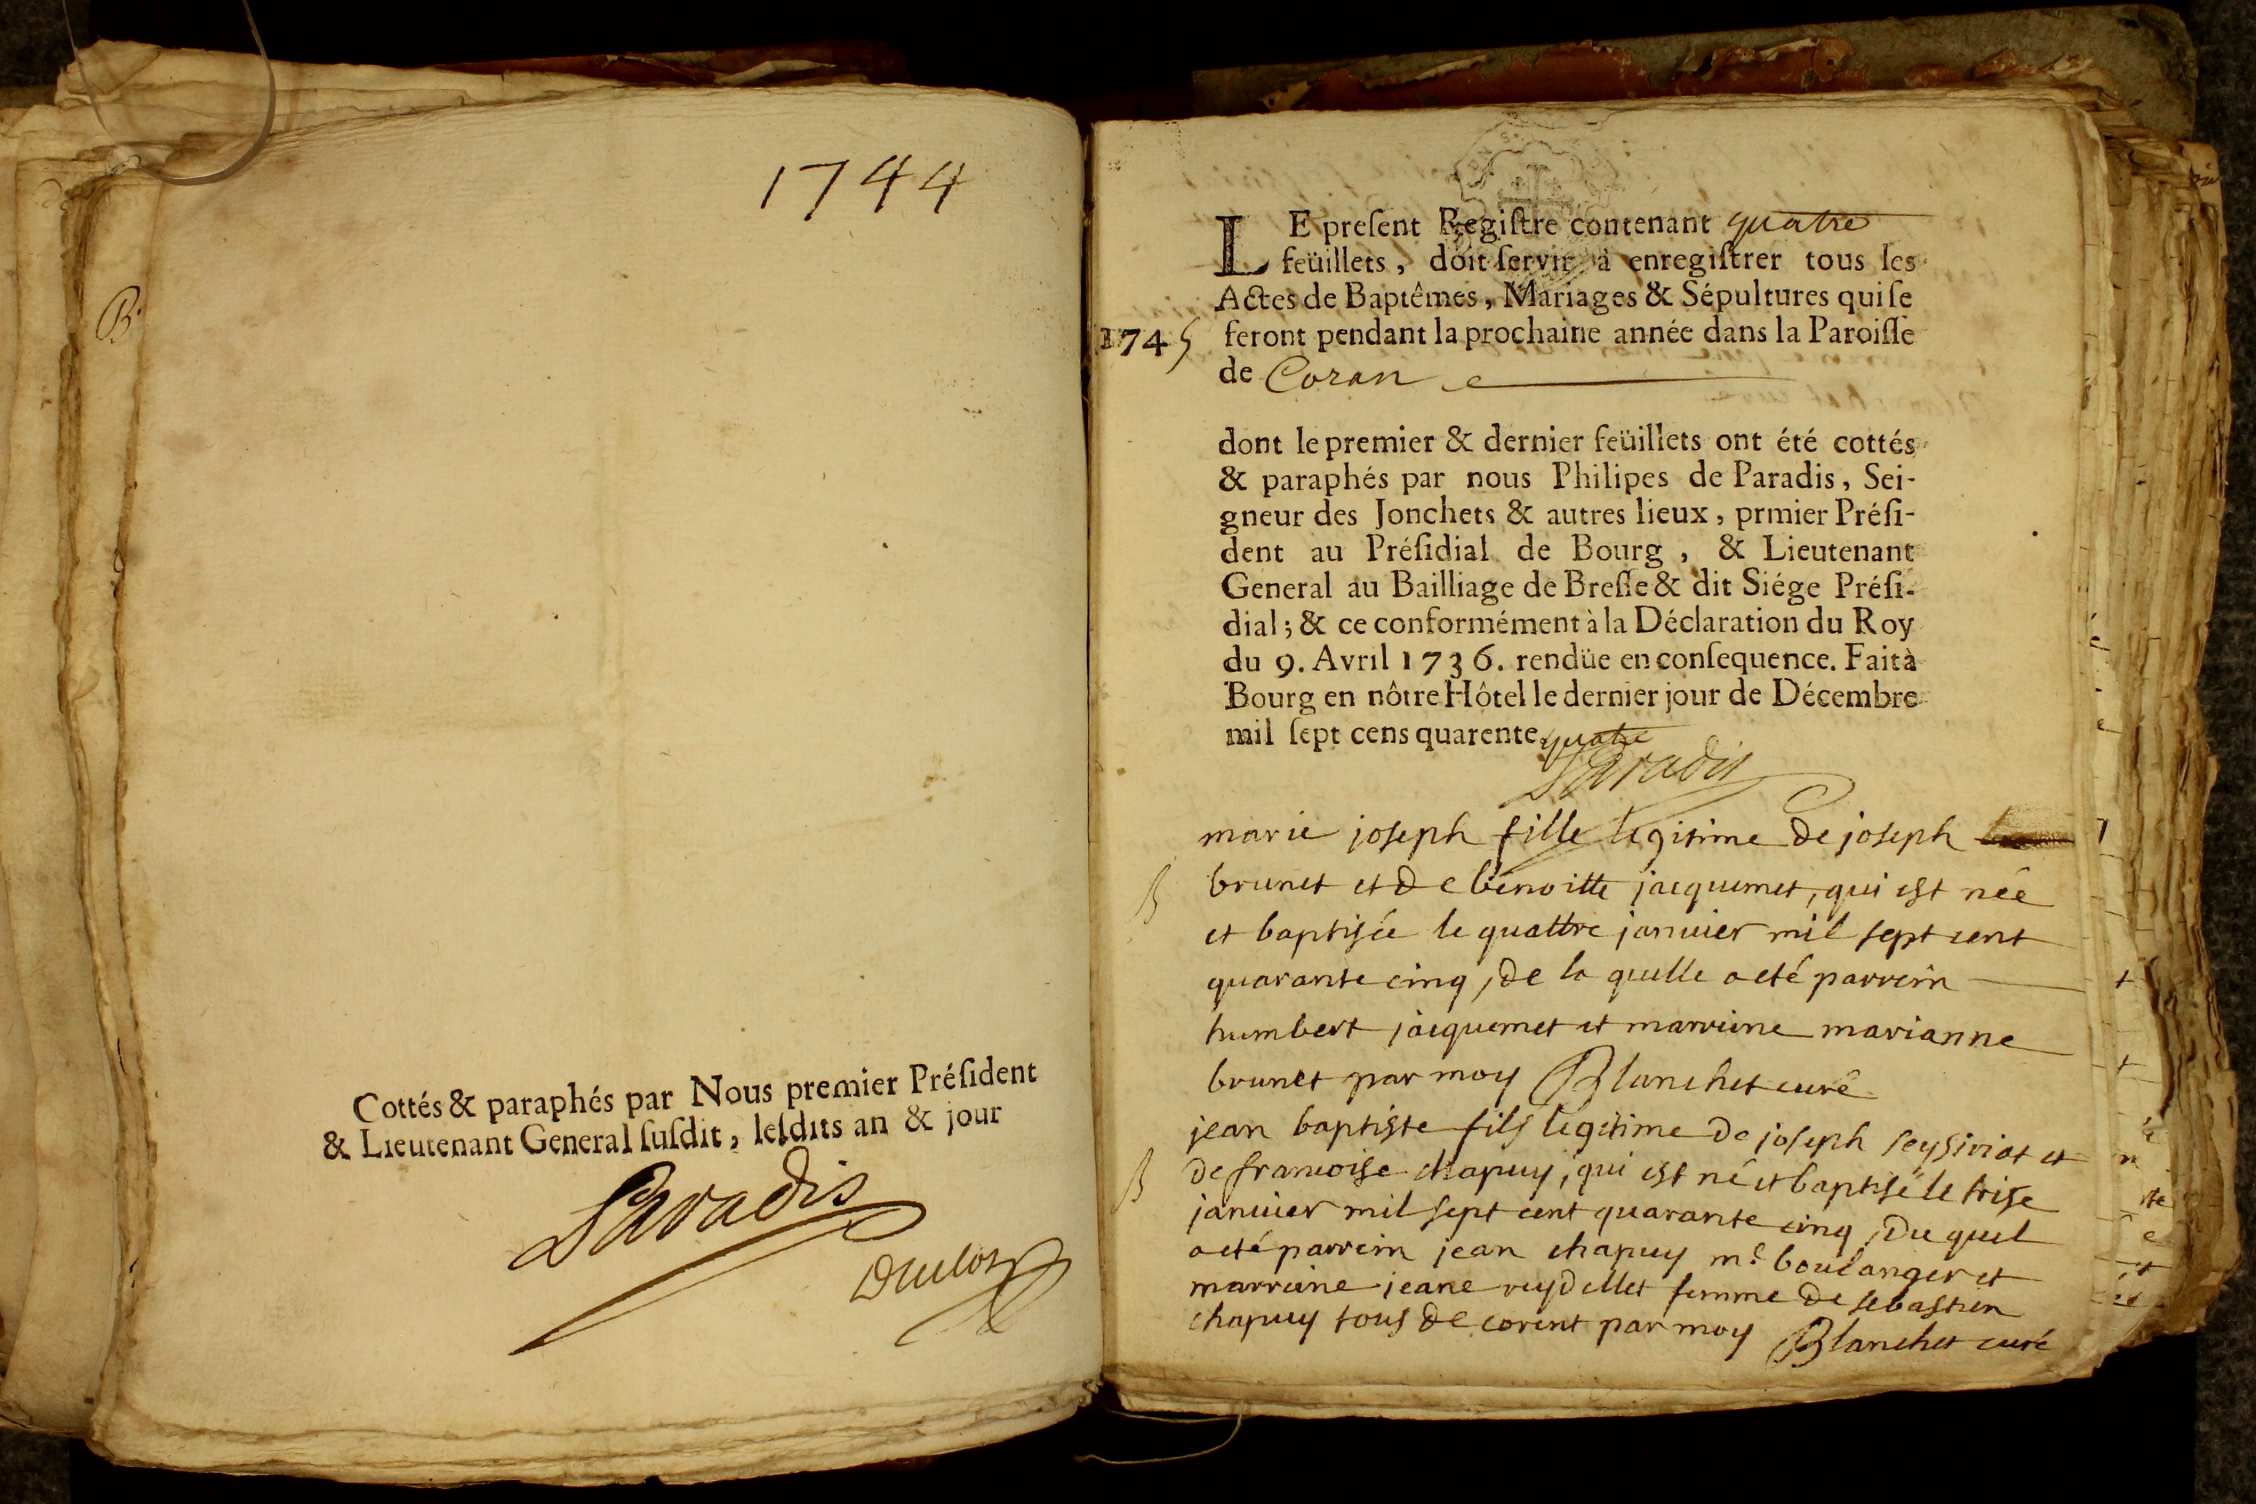 1744
B.
Cottés & paraphés par Nous premier Préſident
& Lieutenant General ſuſdit, leſdits an & jour
Paradis
Duclos
LE preſent Regiſtre contenant quatre
feüillets, doit ſervir à enregiſtrer tous les
Actes de Baptêmes, Mariages & Sépultures qui ſe
1745 feront pendant la prochaine année dans la Paroiſſe
de Coran
dont le premier & dernier feüillets ont été cottés
& paraphés par nous Philipes de Paradis, Sei-
gneur des Jonchets & autres lieux, prmier Préſi-
dent au Préſidial de Bourg, & Lieutenant
General au Bailliage de Breſſe & dit Siége Préſi-
dial; & ce conformément à la Déclaration du Roy
du 9. Avril 1736. rendüe en conſequence. Fait à
Bourg en nôtre Hôtel le dernier jour de Décembre
mil ſept cens quarente quatre
Paradis
marie joseph fille legitime de joseph
B brunet et de benoitte jacquemet, qui est née
et baptisée le quattre janvier mil sept cent
quarante cinq, de la quelle a eté parrein
humbert jacquemet et marreine marianne
brunet par moy Blanchet curé
jean baptiste fils legitime de joseph seysiriat et
B de francoise chapuy, qui est né et baptisé le treise
janvier mil sept cent quarante cinq, du quel
a eté parrein jean chapuy me boulanger et
marreine jeane reydellet femme de sebastien
chapuy tous de corent par moy Blanchet curé